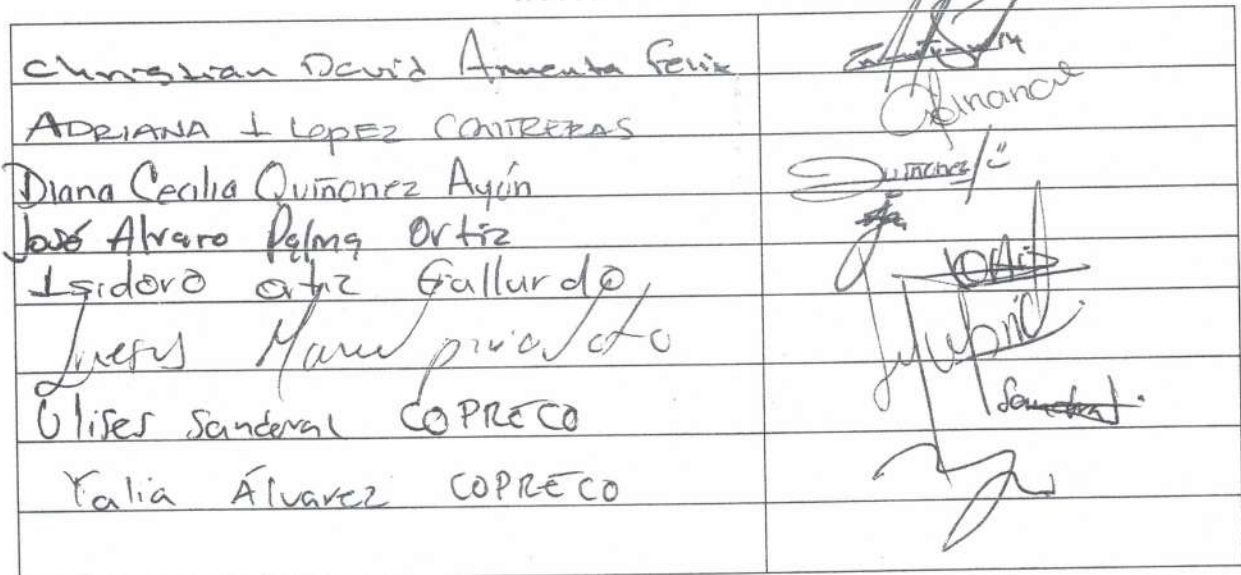 Christian David Armenta Felix
ADRIANA I LOPEZ CONTRERAS
Diana Cecilia Quiñonez Ayón Quiñonez
José Alvaro Palma Ortiz
Isidoro ortiz Gallurdo
Jesus Manuel
Ulises Sandoval COPRECO Sandoval
Yalia Álvarez COPRECO